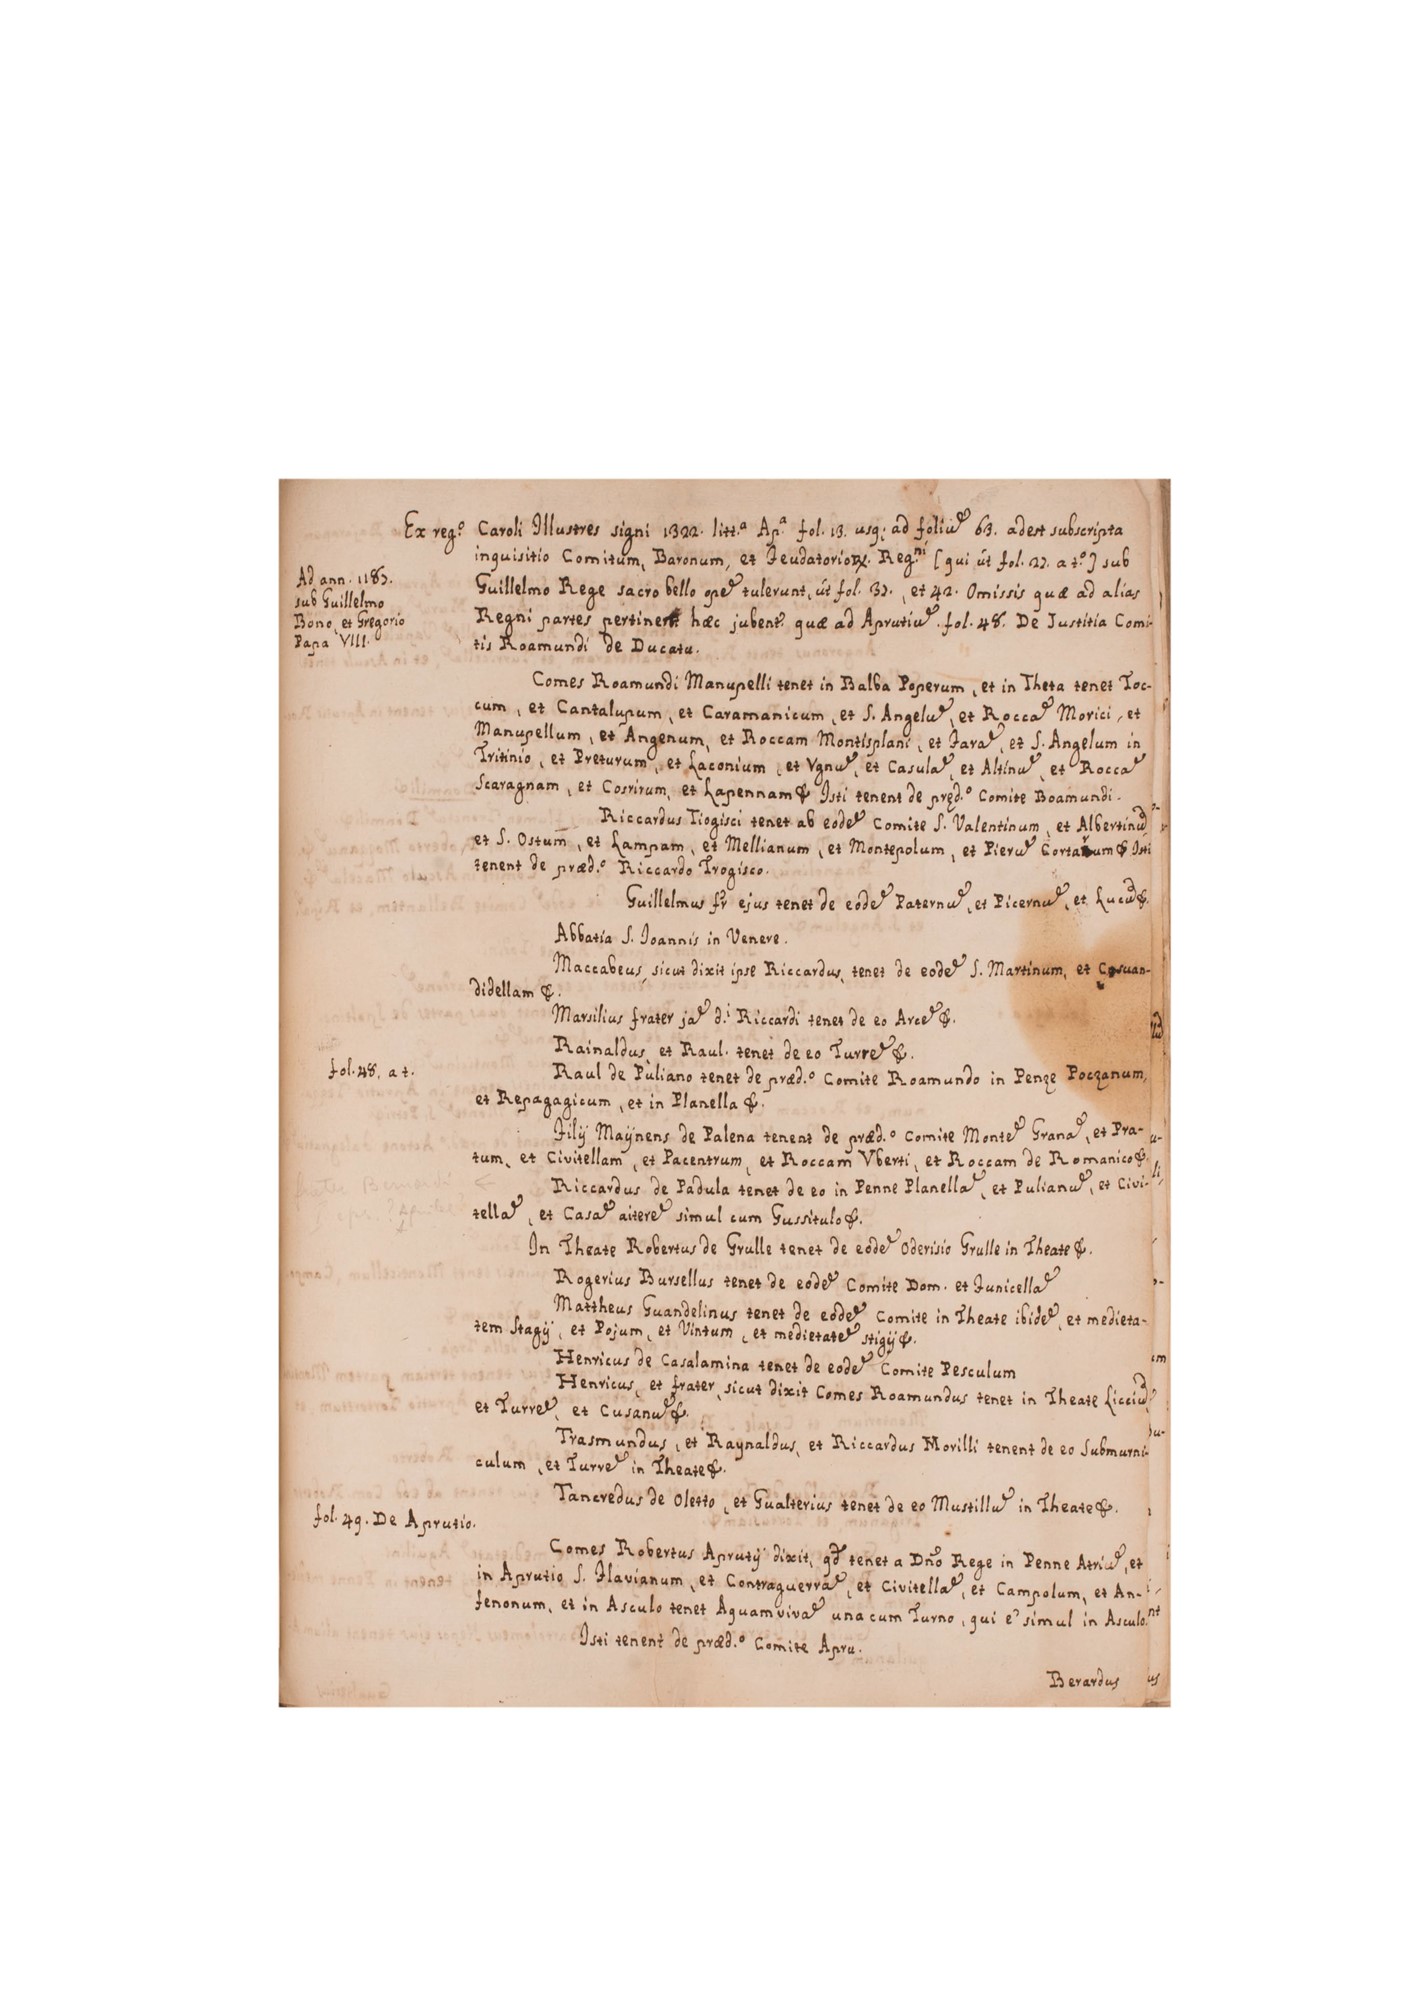 Ex reg.º Caroli Illustres signi 1322. litt.ª Ap.ª fol. 13. usq; ad foliũ 63. adest subscripta
inquisitio Comitum, Baronum, et Feudatorioꝝ. Reg.ni [qui út fol. 27. a t.º] sub
Ad ann. 1187.
sub Guillelmo
Bono, et Gregorio
Papa VIII.
Guillelmo Rege sacro bello opẽ tulerunt, út fol. 37., et 42. Omissis quæ ad alias
Regni partes pertinent hæc jubent.r quæ ad Aprutiũ. fol. 48. De Justitia Comi-
tis Roamundi de Ducatu.
Comes Roamundi Manupelli tenet in Balba Poperum, et in Theta tenet Toc-
cum, et Cantalupum, et Caramanicum, et S. Angelũ, et Roccã Morici, et
Manupellum, et Angenum, et Roccam Montisplani, et Farã, et S. Angelum in
Tritinio, et Preturum, et Laconium, et Vgnũ, et Casulã, et Altinũ, et Roccã
Scaragnam, et Cosrirum, et Lapennam &. Isti tenent de pręd.º Comite Boamundi.
Riccardus Tiogisci tenet ab eodẽ Comite S. Valentinum, et Albertinũ,
et S. Ostum̄, et Lampam, et Mellianum, et Montepolum, et Pierũ Cortanum &. Isti
tenent de præd.º Riccardo Trogisco.
Guillelmus fr̃ ejus tenet de eodẽ Paternũ, et Picernũ, et Lucũ &.
Abbatia S. Ioannis in Venere.
Maccabeus, sicut dixit ipse Riccardus, tenet de eodẽ S. Martinum, et Casuan-
didellam &.
Marsilius frater jã d.i Riccardi tenet de eo Arcẽ &.
Rainaldus, et Raul. tenet de eo Turrẽ &.
fol. 48, a t.
Raul de Puliano tenet de præd.º Comite Roamundo in Penze Poczanum,
et Repagagicum, et in Planella &.
Filij Maÿnens de Palena tenent de præd.º Comite Montẽ Granã, et Pra-
tum, et Civitellam, et Pacentrum, et Roccam Vberti, et Roccam de Romanico &.
Riccardus de Padula tenet de eo in Penne Planellã, et Pulianũ, et Civi-
tellã, et Casã aiterẽ simul cum Gussitulo &.
In Theate Robertus de Grulle tenet de eodẽ Oderisio Grulle in Theate &.
Rogerius Bursellus tenet de eodẽ Comite Dom. et Junicellã
Mattheus Guandelinus tenet de eodẽ Comite in Theate ibidẽ, et medieta-
tem Stagij, et Pojum, et Vintum, et medietatẽ stigij &.
Henricus de Casalamina tenet de eodẽ Comite Pesculum
Henricus, et frater, sicut dixit Comes Roamundus tenet in Theate Licciũ,
et Turrẽ, et Cusanũ &.
Trasmundus, et Raynaldus, et Riccardus Morilli tenent de eo Submurni-
culum, et Turrẽ in Theate &.
Tancredus de Oletto, et Gualterius tenet de eo Mustillũ in Theate &.
fol. 49. De Aprutio.
Comes Robertus Aprutij dixit, qđ tenet a Dño Rege in Penne Atriũ, et
in Aprutio S. Flavianum, et Contraguerrã, et Civitellã, et Campolum, et An-
fenonum, et in Asculo tenet Aquamvivã una cum Turno, qui ẽ simul in Asculo.
Isti tenent de præd.º Comite Apru.
Berardus